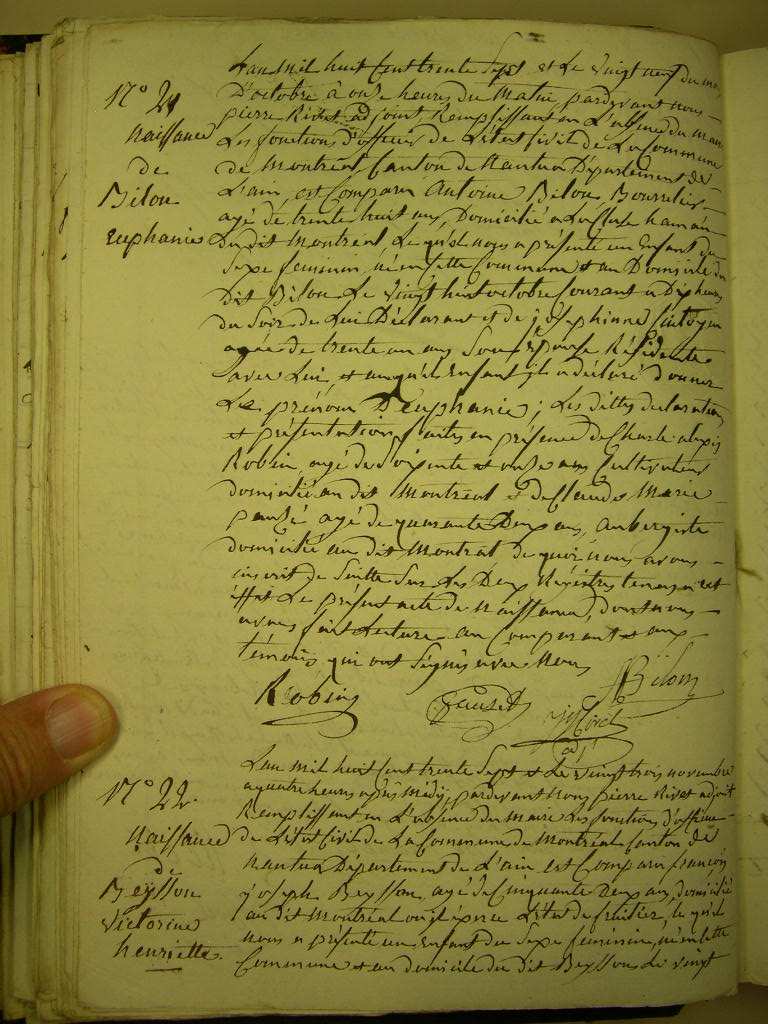 N° 21
Naissance
de
Bilon
Euphanie
L'an Mil huit Cent trente Sept et Le Vingt neuf du mois
D'octobre à onze heures du Matin, pardevant nous
pierre Rivet adjoint Remplissant en L'absence du Maire
Les fonctions D'officier de L'état Civil de La Commune
de Montréal, Canton de Nantua Département de
L'ain, est Comparu Antoine Bilon, Bourrelier
agé de trente huit ans, Domicilié
du dit Montréal, Le quel nous a présenté un Enfant du
Sexe feminin, né en Cette Commune et au Domicile du
dit Bilon Le Vingt huit octobre Courant a Dix heures
du Soir de Lui Déclarant et de Josephinne
agée de trente un ans Son Epouse Résidente
avec Lui, et au quel Enfant il a déclaré donner
Le prénom D'Euphanie; Les dittes déclaration
et présentation faites en présence de Charle alexis
Robin, agé de Soixante et onze ans Cultivateur
domicilié au dit Montréal et de Claude Marie
pauzé agé de quarante Deux ans, Aubergiste
domicilié au dit Montréal de quoi nous avons
inscrit de Suitte Sur Les Deux Régistres tenus a cet
effet Le présent acte de Naissance, dont nous
avons fait Lecture au Comparant et aux
témoins qui ont Signés avec Nous
Robin
Bilon
adj
N° 22
Naissance
D
Beysson
Victorine
henriette
L'an Mil huit Cent trente Sept et Le Vingt trois novembre
a quatre heures après Midy, pardevant Nous pierre Rivet adjoit
Remplissant en L'absence du Maire Les fonctions d'officier
de L'état Civil de La Commune de Montréal Canton de
Nantua Département de L'ain est Comparu françois
joseph Beysson, agé de Cinquante Deux ans, domicilié
au dit Montréal ou il éxerce L'état de fruitier, le quel
nous a présenté un Enfant du Sexe feminine, né en Cette
Commune et au domicile du dit Beysson Le Vingt